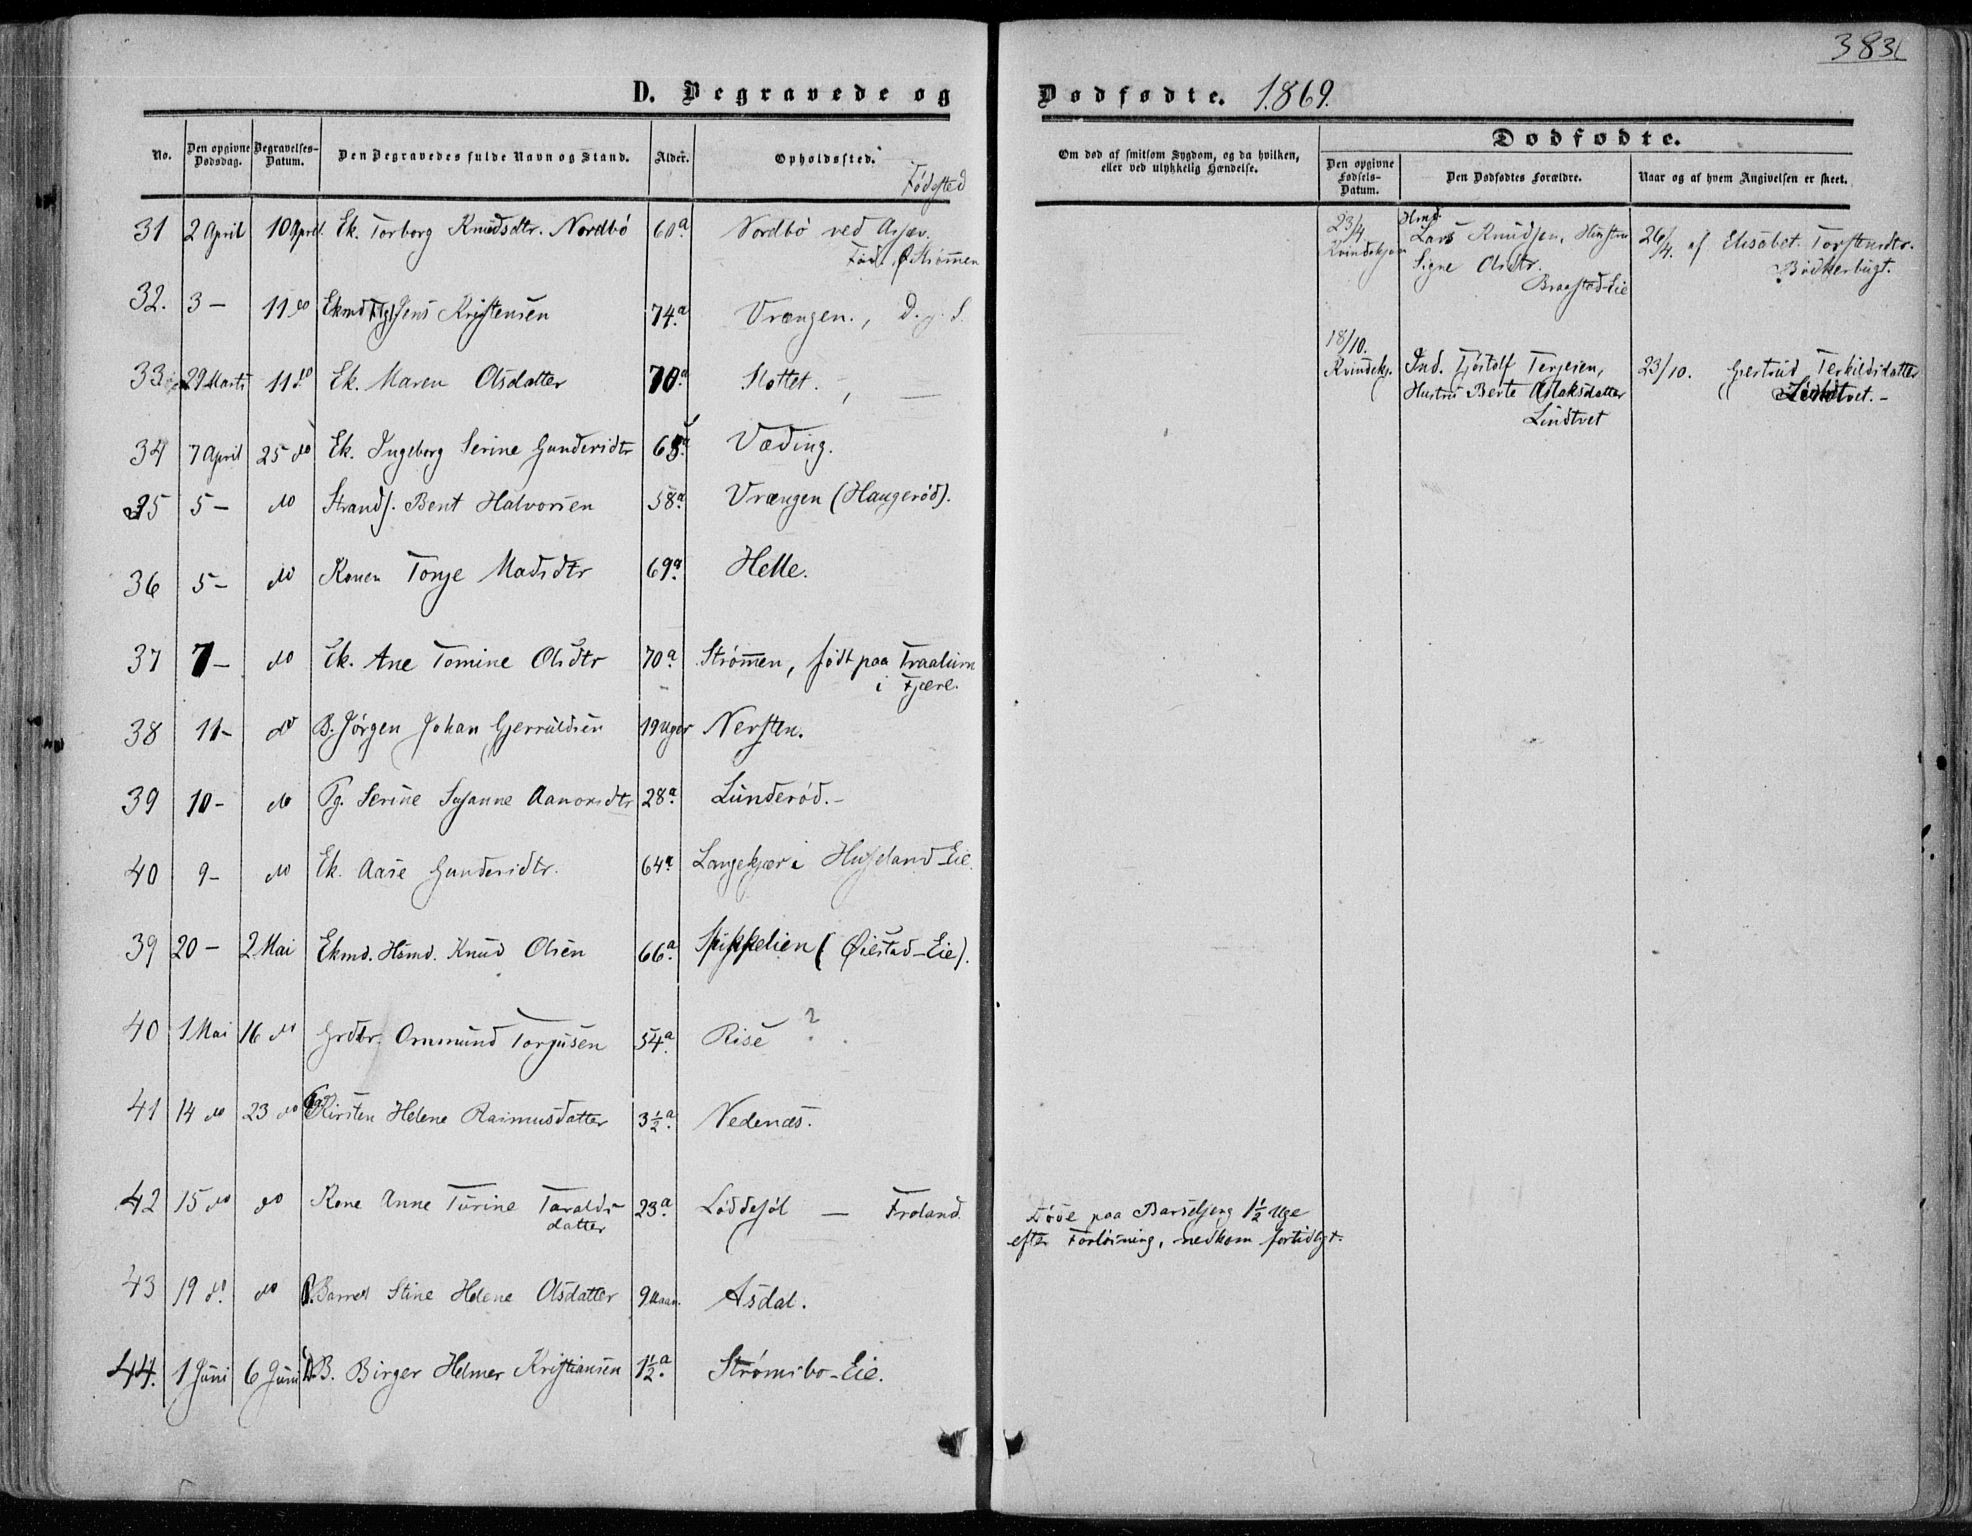 383
D. Begravede og
Dødfødte. 1869.
No.
Den opgivne Dødsdag.
Begravelses-Datum.
Den Begravedes fulde Navn og Stand.
Alder.
Opholdssted.
Fødested
Om død af smitsom Sygdom, og da hvilken, eller ved ulykkelig Hændelse.
Dødfødte.
Den opgivne Fødsels-Datum.
Den Dødfødtes Forældre.
Naar og af hvem Angivelsen er skeet.
31 2 April 10 April. Ek. Torborg Knudsdtr. Nordbö 60a Nordbö ved
Fød. Strømmen
32. 3 – 11 do Ekmd Jens Kristensen 74a Vrængen.,
33 29 Marts 11 do Ek. Maren Olsdatter 70a Slottet.
34 7 April 25 do Ek. Ingeborg Serine Gundersdtr 65a Væding.
35 5 – do Strands. Bent Halvorsen 58a Vrængen (Haugerød).
36 5 – do Konen Tonje Madsdtr 69a Helle.
37 7 – do Ek. Ane Tomine Olsdtr 70a Strømmen, født paa Traalum
i Fjære.
38 11 – do B. Jørgen Johan Gjerruldsen 19 Uger Nersten.
39 10 – do Pg. Serine Susanne Aanonsdtr 28a Lunderød. –
40 9 – do Ek. Aase Gundersdtr. 64a Langekjær i Huseland-Eie
39 20 – 2 Mai Ekmd. Hsmd. Knud Olsen 66a Spikkelien (Øiestad-Eie).
40 1 Mai 16 do Grdbr. Ommund Torjusen 54a Rise ?
41 14 do 23 do Kirsten Helene Rasmusdatter 3½a Nedenæs.
42 15 do do Kone Anne Turine Taralds- 23a Løddesøl – Froland.
datter
Døde paa Barselseng 1½ Uge
efter Forløsning, nedkom fortidligt.
43 19 do. do P. Barnet Stine Helene Olsdatter 9 Maan. Asdal.
44. 1 Juni 6 Juni D.B. Birger Helmer Kristiansen 1½a Strømsbo-Eie.
23/4
Kvindekjøn
Hsmd.
Lars Knudsen, Hustru
Signe Olsdtr.
Braastad-Eie
26/4. af Elisabet Torstensdtr.
Bödkerbugt.
18/10.
Kvindekj.
Ind. Tjöstolf Terjesen,
Hustru Berte Aslaksdatter
Lindtvet
23/10. Gjertrud Terkildsdatter
Lindtvet. –